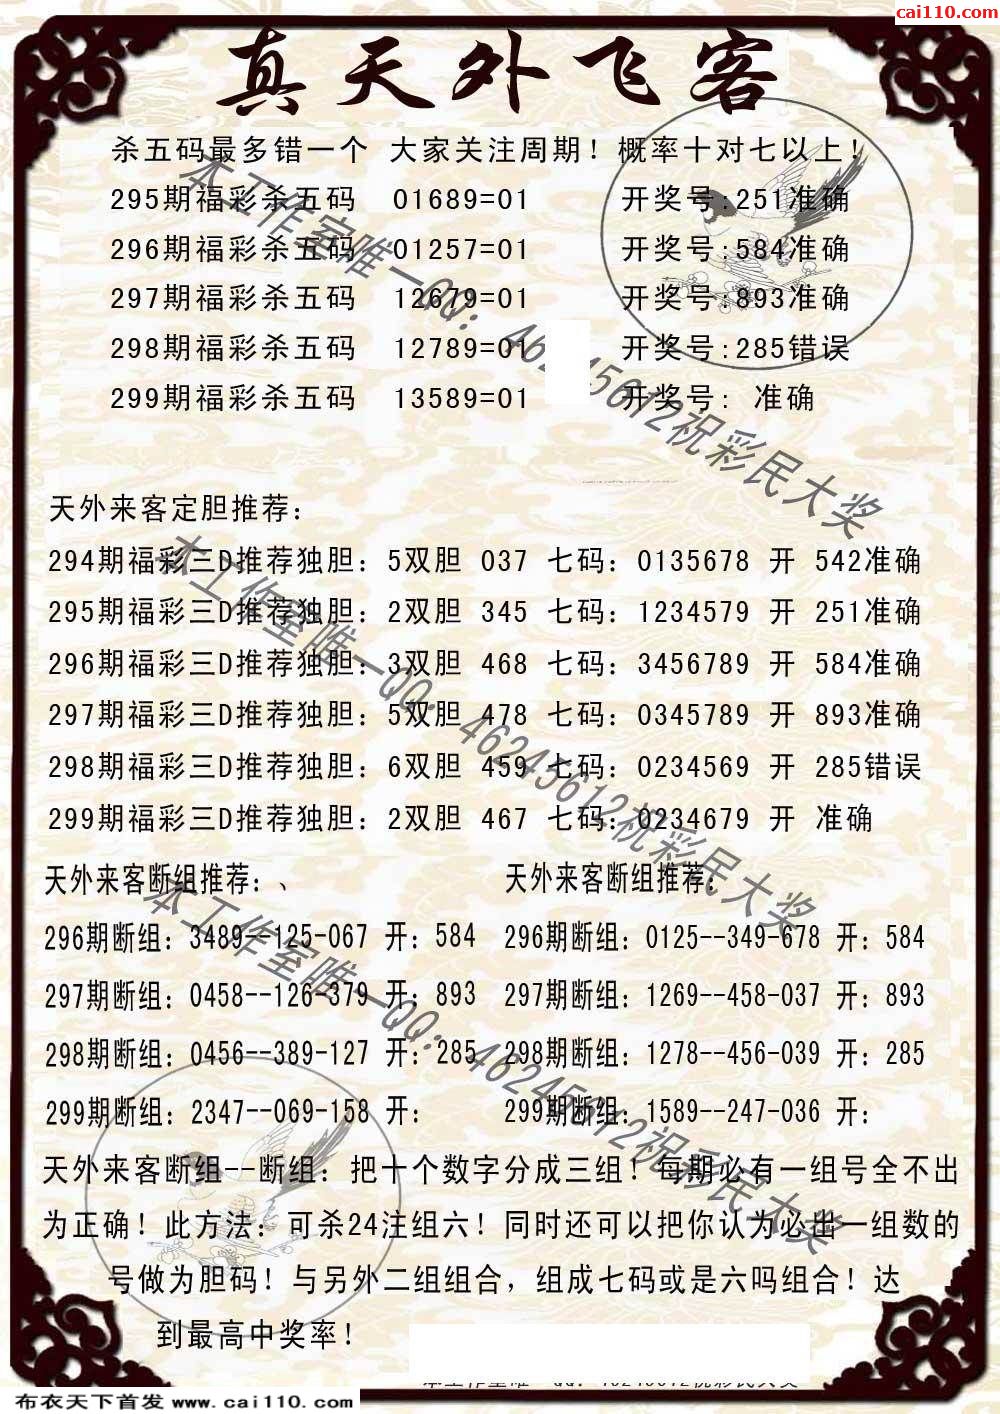 cai110.com
真天外飞客
杀五码最多错一个 大家关注周期！概率十对七以上！
295期福彩杀五码 01689=01 开奖号:251准确
296期福彩杀五码 01257=01 开奖号:584准确
297期福彩杀五码 12679=01 开奖号:893准确
298期福彩杀五码 12789=01 开奖号:285错误
299期福彩杀五码 13589=01 开奖号: 准确
天外来客定胆推荐：
294期福彩三D推荐独胆：5双胆 037 七码：0135678 开 542准确
295期福彩三D推荐独胆：2双胆 345 七码：1234579 开 251准确
296期福彩三D推荐独胆：3双胆 468 七码：3456789 开 584准确
297期福彩三D推荐独胆：5双胆 478 七码：0345789 开 893准确
298期福彩三D推荐独胆：6双胆 459 七码：0234569 开 285错误
299期福彩三D推荐独胆：2双胆 467 七码：0234679 开 准确
天外来客断组推荐：、 天外来客断组推荐：
296期断组：3489--125-067 开：584 296期断组：0125--349-678 开：584
297期断组：0458--126-379 开：893 297期断组：1269--458-037 开：893
298期断组：0456--389-127 开：285 298期断组：1278--456-039 开：285
299期断组：2347--069-158 开： 299期断组：1589--247-036 开：
天外来客断组--断组：把十个数字分成三组！每期必有一组号全不出
为正确！此方法：可杀24注组六！同时还可以把你认为必出一组数的
号做为胆码！与另外二组组合，组成七码或是六吗组合！达
到最高中奖率！
本工作室唯一QQ：46245612祝彩民大奖
本工作室唯一QQ：46245612祝彩民大奖
本工作室唯一QQ：46245612祝彩民大奖
本工作室唯一QQ：46245612祝彩民大奖
布衣天下首发 www.cai110.com